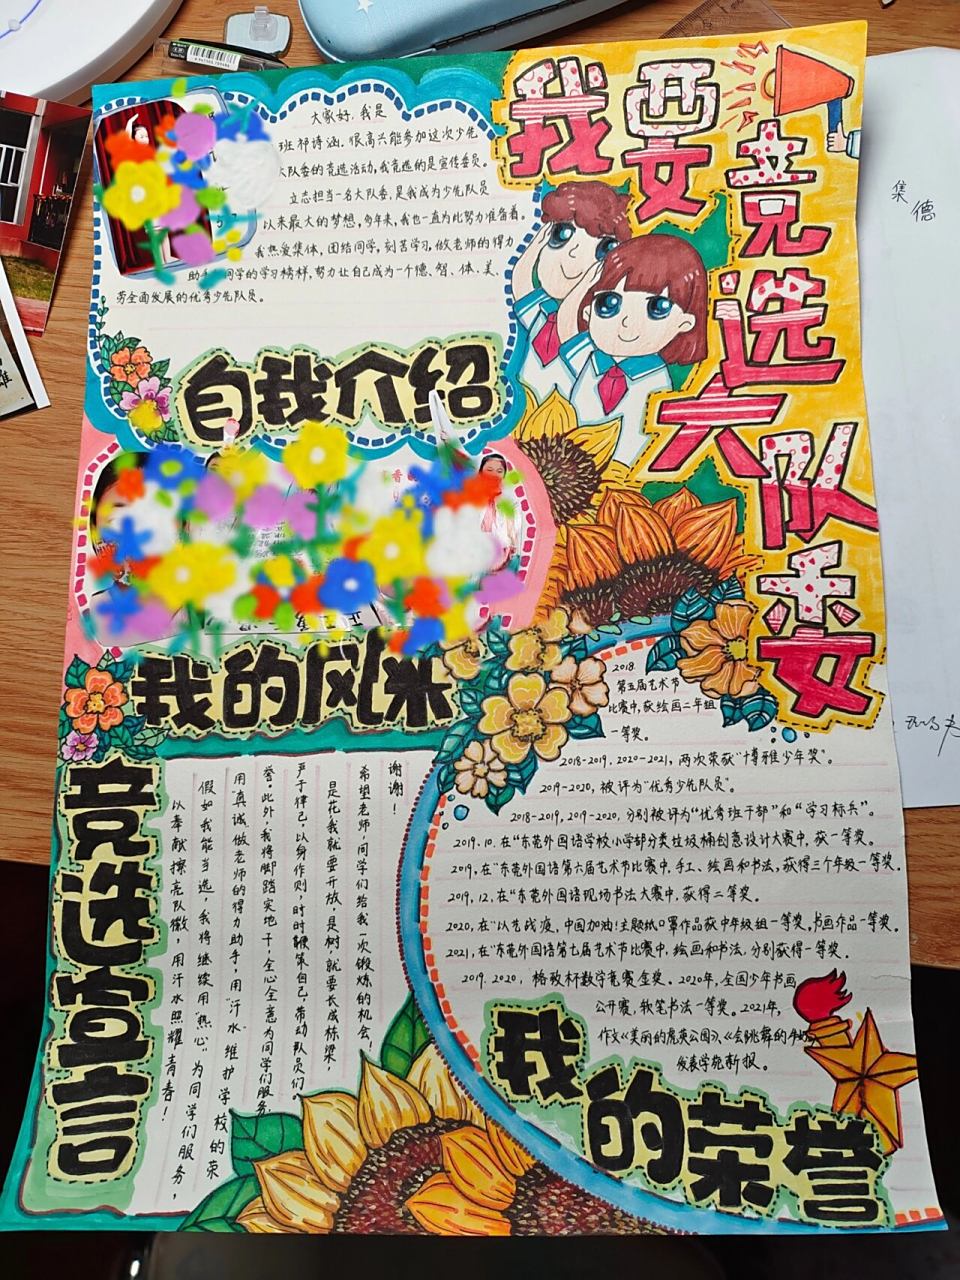 我要竞选大队委
大家好,我是
班祁诗涵.很高兴能参加这次少先
大队委的竞选活动,我竞选的是宣传委员。
立志担当一名大队委,是我成为少先队员
以来最大的梦想,多年来,我也一直为此努力准备着。
我热爱集体,团结同学,刻苦学习,做老师的得力
助手 同学的学习榜样,努力让自己成为一个德、智、体、美、
劳全面发展的优秀少先队员。
自我介绍
我的风采
竞选宣言
谢谢!
希望老师、同学们给我一次锻炼的机会!
是花,我就要开放,是树,就要长成栋梁,
严于律己,以身作则,时时鞭策自己,带动队员们。
誉。此外,我将脚踏实地干,全心全意为同学们服务,
用"真诚做老师的得力助手,用"汗水"维护学校的荣
假如我能当选,我将继续用"热心"为同学们服务,
以奉献擦亮队徽,用汗水照耀青春!
2018.
第五届艺术节
比赛中,获绘画二年组
一等奖。
2018-2019,2020-2021,两次荣获"博雅少年奖"。
2019-2020,被评为"优秀少先队员"。
2018-2019,2019-2020,分别被评为"优秀班干部"和"学习标兵"。
2019.10.在"东莞外国语学校小学部分类垃圾桶创意设计大赛中,获一等奖。
2019,在"东莞外国语第六届艺术节比赛中,手工、绘画和书法,获得三个年级一等奖。
2019,12,在"东莞外国语现场书法大赛中,获得二等奖。
2020,在"以艺战疫,中国加油!主题纸口罩作品获中年级组一等奖,书画作品一等奖。
2021,在"东莞外国语第七届艺术节比赛中,绘画和书法,分别获得一等奖。
2019.2020,格致杯数学竞赛金奖。2020年,全国少年书画
公开赛,软笔书法一等奖。2021年,
作文《美丽的虎英公园》、《会跳舞的牛奶》
发表学苑新报。
我的荣誉
集
德